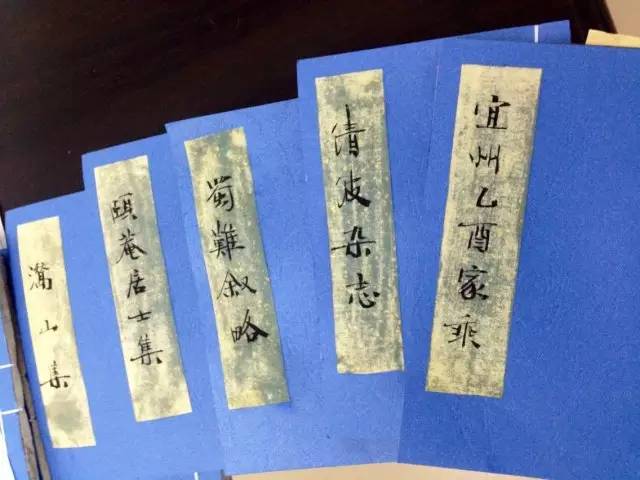 宜州乙酉家乘
清波杂志
蜀難叙略
頤菴居士集
灊山集